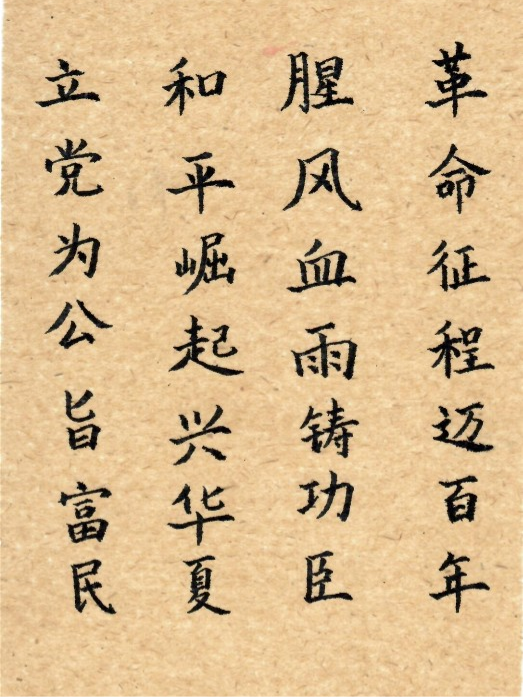 革命征程迈百年
腥风血雨铸功臣
和平崛起兴华夏
立党为公旨富民